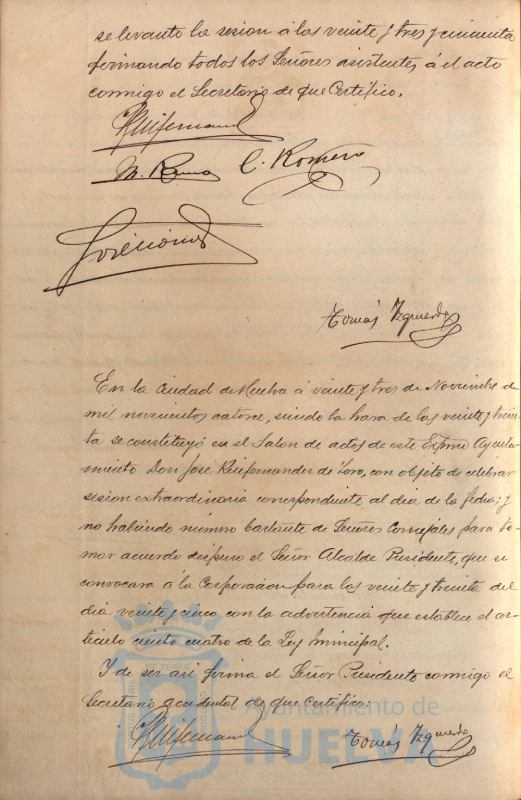 se levanto la sesion á las veinte y tres y cincuenta
firmando todos los Señores asistentes á el acto
conmigo el Secretario de que Certifico.
M. Rama C. Romero
Tomás Izquierdo
En la Ciudad de Huelva á veinte y tres de Noviembre de
mil novecientos catorce, siendo la hora de las veinte y trein-
ta se constituyó en el Salon de actos de este Excmo Ayunta-
miento Don José Ruifernandez de Toro, con objeto de celebrar
sesion extraordinaria correspondiente al dia de la fecha; y
no habiendo número bastante de Señores Concejales para to-
mar acuerdo dispuso el Señor Alcalde Presidente, que se
convocara á la Corporacion para las veinte y treinta del
dia veinte y cinco con la advertencia que establece el ar-
ticulo ciento cuatro de la Ley Municipal.
Y de ser asi firma el Señor Presidente conmigo el
Secretario accidental de que Certifico:
Ayuntamiento de
HUELVA
Tomás Izquierdo